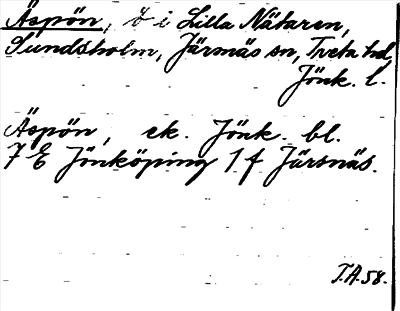 Äspön, ö i Lilla Nätaren,
Sundsholm, Järsnäs sn, Tveta hd,
Jönk. l.
Äspön, ek. Jönk. bl.
7 E Jönköping 1 f Järsnäs.
T.A. 58.